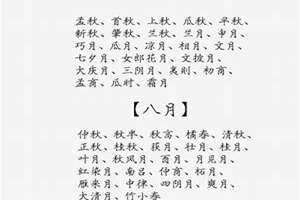 孟秋、首秋、上秋、瓜秋、早秋、
新秋、肇秋、兰秋、兰月、申月、
巧月、瓜月、凉月、相月、文月、
七夕月、女郎花月、文披月、
大庆月、三阴月、夷则、初商、
孟商、瓜时、霜月
【八月】
仲秋、秋半、秋高、橘春、清秋、
正秋、桂秋、获月、壮月、桂月、
叶月、秋风月、百月、月见月、
红染月、南吕、仲商、柘月、
雁来月、中律、四阴月、爽月、
大清月、竹小春